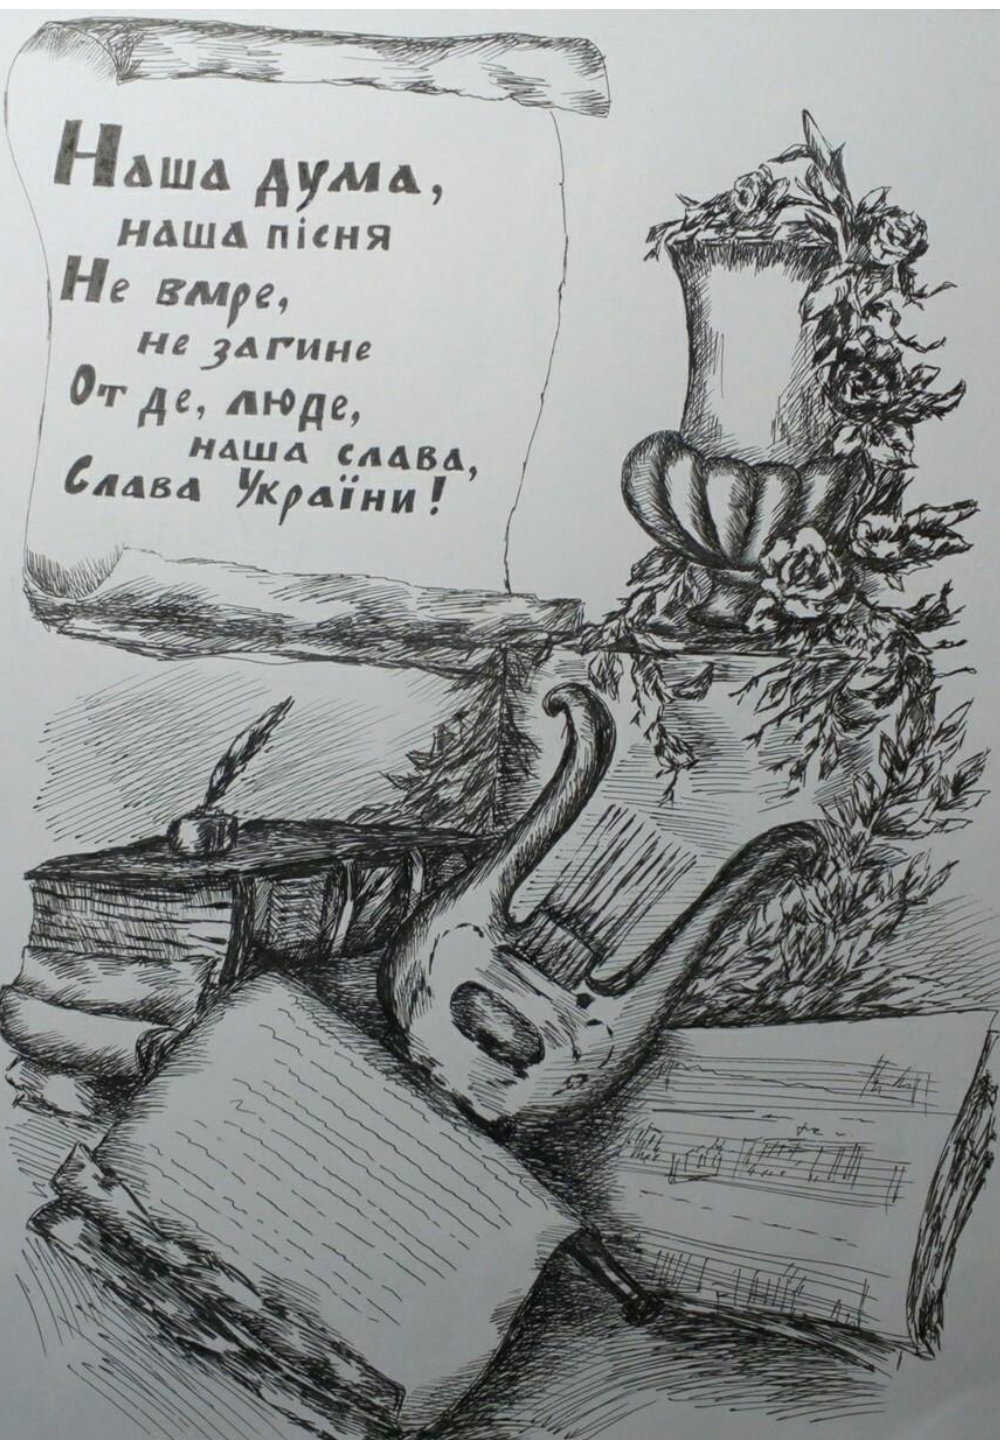 Наша дума,
наша пісня
Не вмре,
не загине
От де, люде,
наша слава,
Слава України!